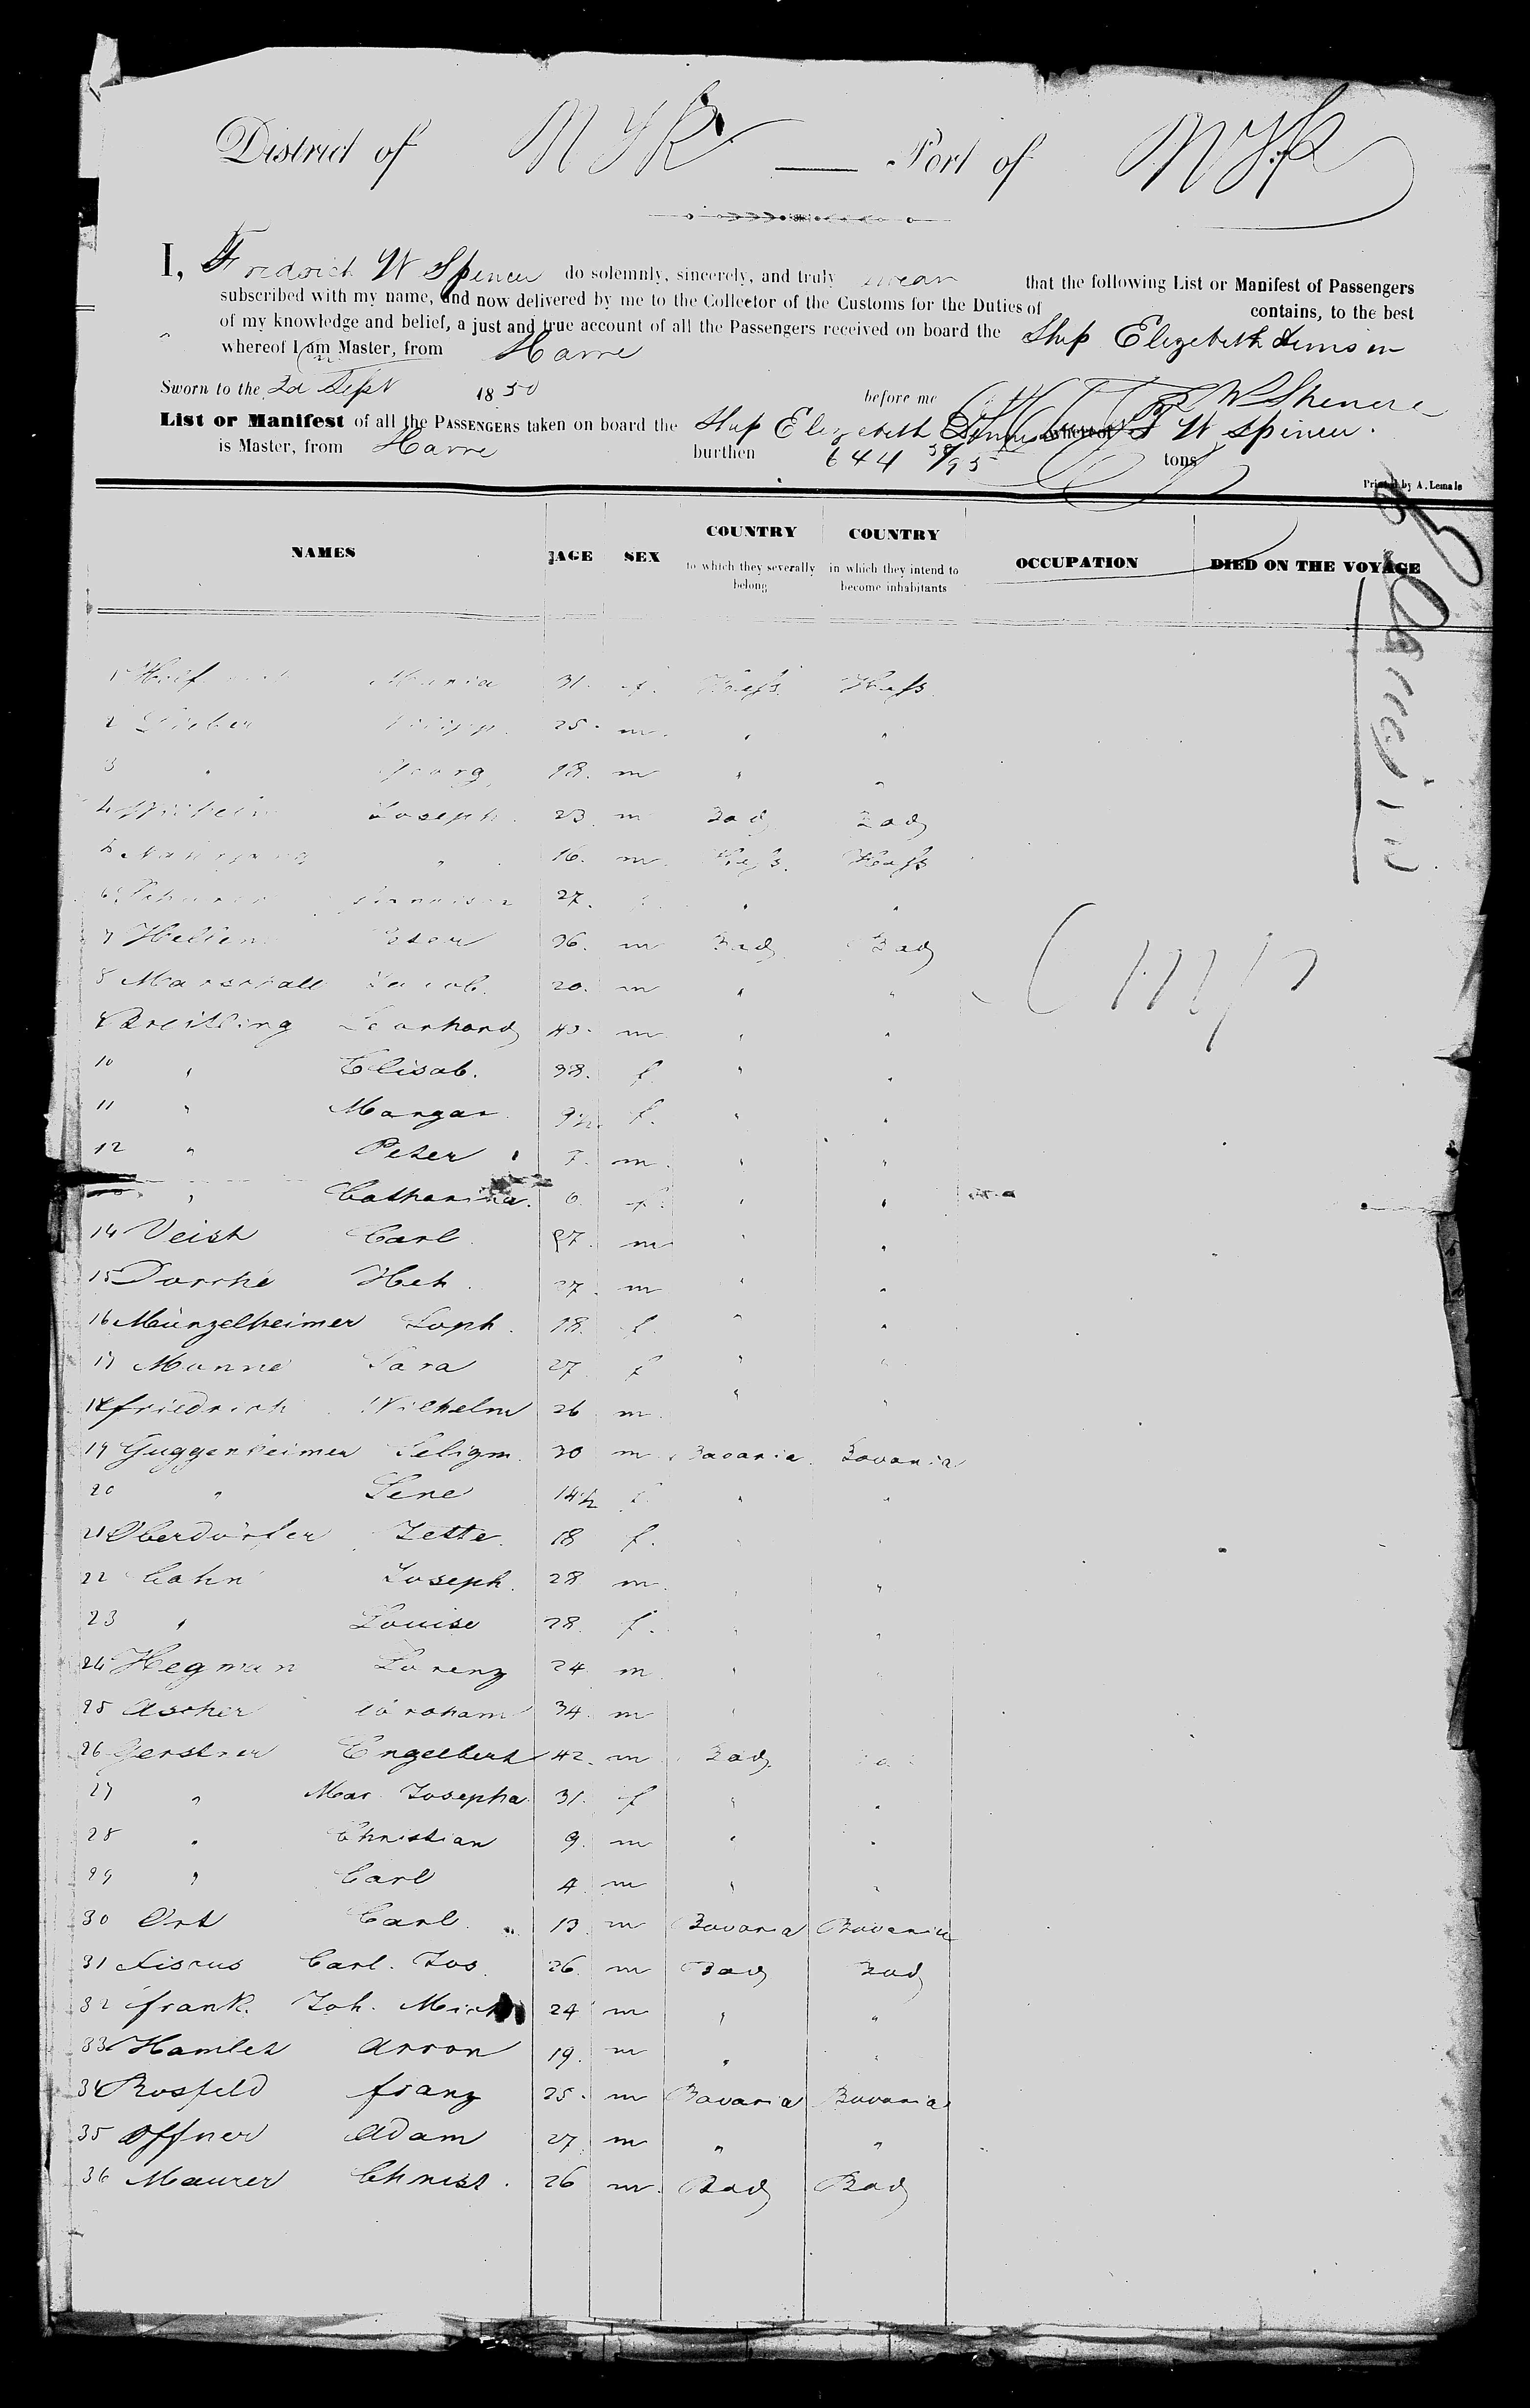 District of NYk — Port of NYk
I, Fredrick W Spencer do solemnly, sincerely, and truly swear that the following List or Manifest of Passengers
subscribed with my name, and now delivered by me to the Collector of the Customs for the Duties of contains, to the best
of my knowledge and belief, a just and true account of all the Passengers received on board the Ship Elizebeth Denison
whereof I am Master, from Havre
Sworn to the 2d Sept 1850 before me F W Spencer
List or Manifest of all the PASSENGERS taken on board the Ship Elizebeth Denison whereof F W Spencer
is Master, from Havre burthen 644 /95 tons
Printed by A. Lemale
NAMES AGE SEX COUNTRY to which they severally belong COUNTRY in which they intend to become inhabitants OCCUPATION DIED ON THE VOYAGE
1 31. f. Hess. Hess.
2 25. m. " "
3 " Georg 18. m " "
4 Joseph 23. m Bad Bad
5 " 16. m. Hess. Hess
6 27. " "
7 Peter 36. m Bad Bad
8 Marschall Jacob. 20. m " "
9 Breitling Leonhard 43. m " "
10 " Elisab. 38. f " "
11 " Margar. 9½ f. " "
12 " Peter 7. m. " "
" Catharina. 6 f. " "
14 Veith Carl 27. m " "
15 Hch. 27. m " "
16 Münzelheimer Soph. 18. f. " "
17 Manne Sara 27 f " "
18 friedrich Wilhelm 26 m. " "
19 Guggenheimer Seligm. 30 m Bavaria Bavaria
20 " Lene 14½ f. " "
21 Oberdörfer Jette. 18 f. " "
22 Cahn Joseph. 28 m. " "
23 " Louise 28. f. " "
24 Hegman Lorenz 24 m. " "
25 Ascher Abraham 34. m " "
26 Gerstner Engelbert 42. m Bad Bad
27 " Mar. Josepha 31. f " "
28 " Christian 9. m " "
29 " Carl 4. m " "
30 Ort Carl. 13. m Bavaria Bavaria
31 Carl. Jos. 26. m Bad Bad
32 frank. Joh. Mich 24 m " "
33 Hamlet Arron 19. m " "
34 Rosfeld franz 25. m Bavaria Bavaria
35 Offner Adam 27 m " "
36 Maurer Christ. 26 m. Bad Bad